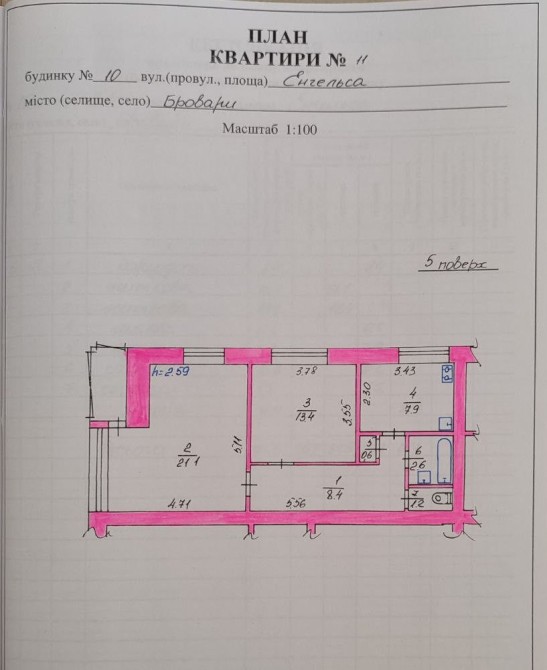 ПЛАН
КВАРТИРИ № 11
будинку № 10 вул.(провул., площа) Енгельса
місто (селище, село) Бровари
Масштаб 1:100
5 поверх
h=2.59
3.78
3.43
2.30
4
7.9
3
13.4
3.55
5.11
2
21.1
5
0.6
6
2.6
1
8.4
7
1.2
4.71
5.56